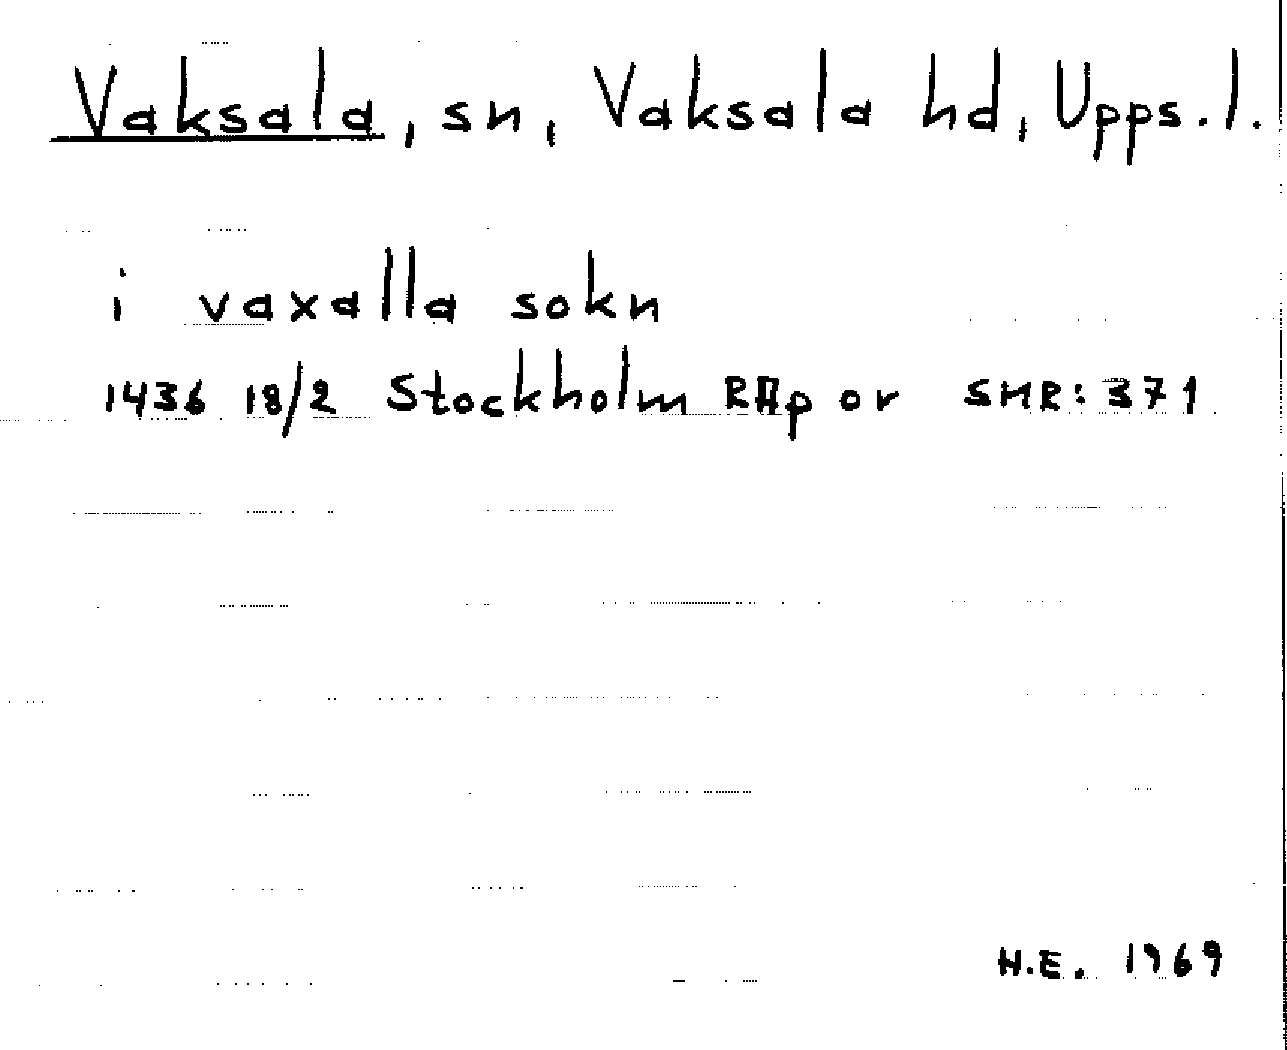 Vaksala, sn, Vaksala hd, Upps. l.
i vaxalla sokn
1436 18/2 Stockholm RAp or SMR: 371
H.E. 1969